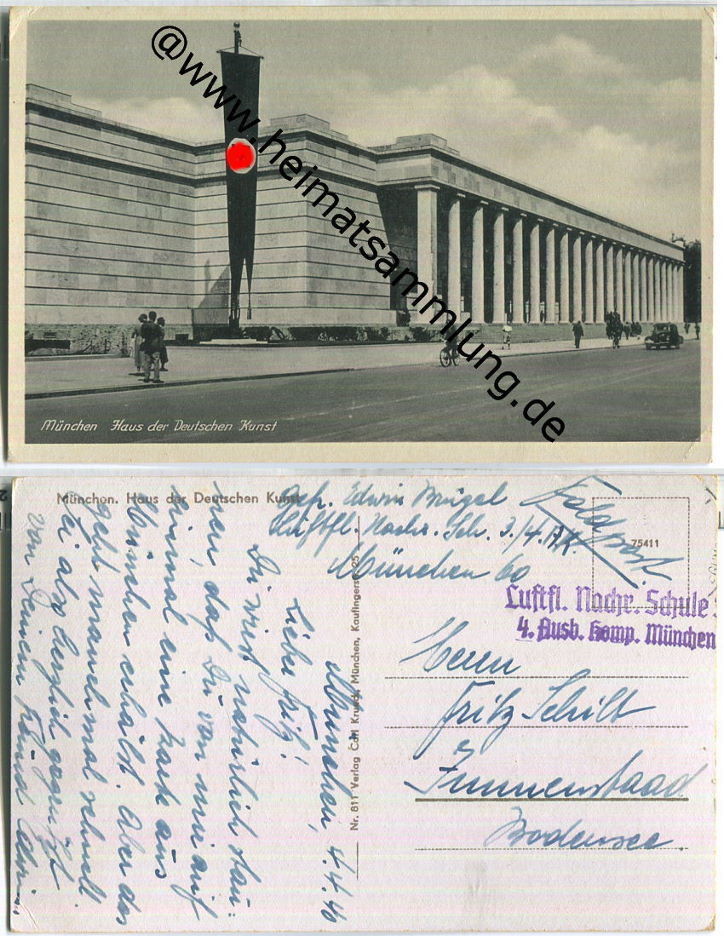 @www.heimatsammlung.de
München Haus der Deutschen Kunst
München. Haus der Deutschen Kunst
Edwin
Luftfl. Nachr. Sch. 3./4. A.K.
München 60
Feldpost
75411
Luftfl. Nachr. Schule
4. Ausb. Komp. München
Herrn
Fritz Schilt
Immenstaad
Bodensee.
Nr. 811 Verlag Carl Krueck, München, Kaufingerstr. 25
München, 4.4.40
Lieber Fritz!
Du wirst natürlich stau-
nen, daß Du von mir auf
einmal eine Karte aus
München erhälst. Aber das
geht manchmal schnell.
Sei also herzlich gegrüßt
von Deinem Freund Edwin.